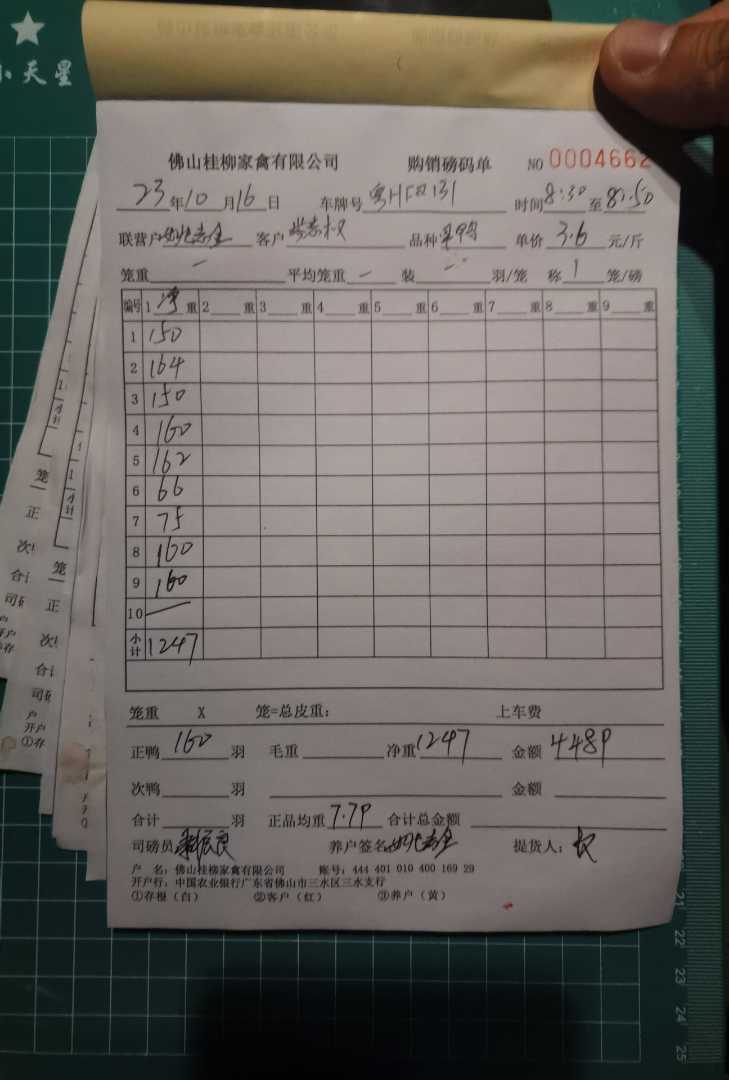 小天星
佛山桂柳家禽有限公司 购销磅码单 NO 0004662
23年10月16日 车牌号 粤HF 131 时间8:30至8:50
联营户 客户 品种 单价 3.6 元/斤
笼重 一 平均笼重 一 装 一 羽/笼 称 1 笼/磅
编号 1 净 重 2 重 3 重 4 重 5 重 6 重 7 重 8 重 9 重
1 150
2 164
3 150
4 160
5 162
6 66
7 75
8 160
9 160
10 —
小计 1247
笼重 X 笼=总皮重: 上车费
正鸭 160 羽 毛重 净重 1247 金额 4489
次鸭 羽 金额
合计 羽 正品均重 7.79 合计总金额
司磅员 养户签名 提货人: 权
户 名: 佛山桂柳家禽有限公司 账号: 444 401 010 400 169 29
开户行: 中国农业银行广东省佛山市三水区三水支行
①存根(白) ②客户(红) ③养户(黄)
21
22
23
24
25